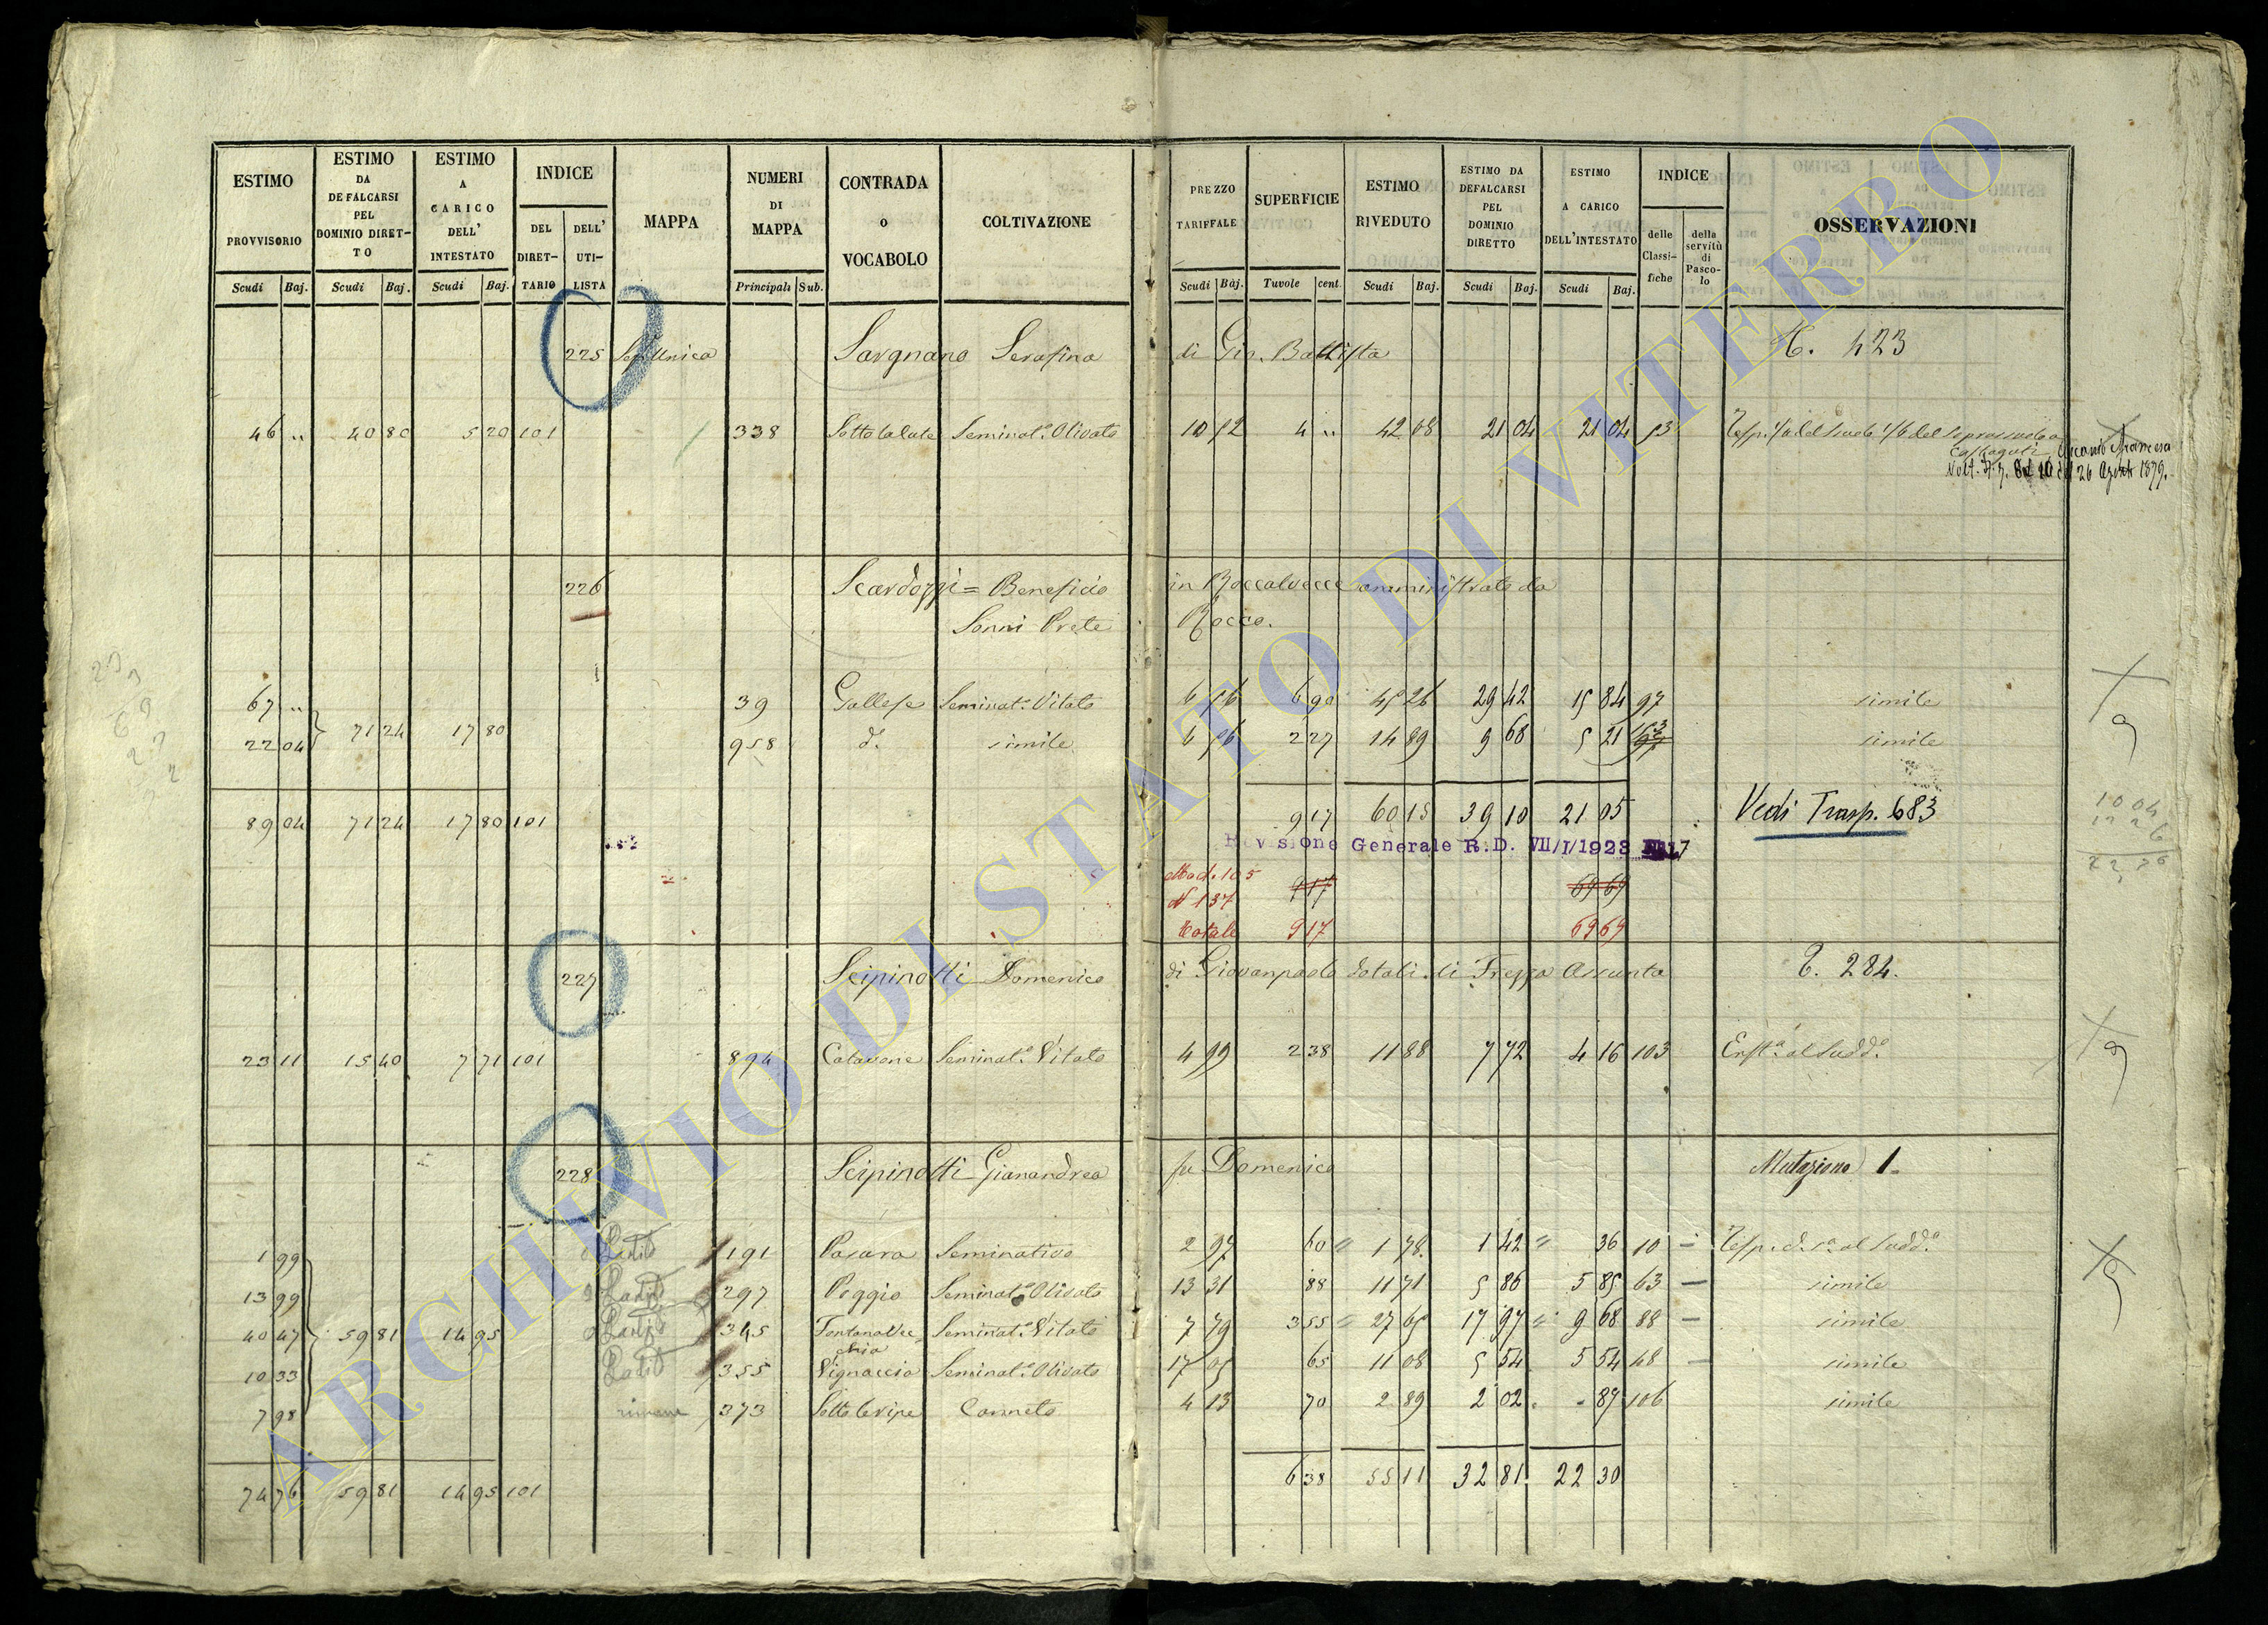 ESTIMO PROVVISORIO Scudi Baj.
ESTIMO DA DEFALCARSI PEL DOMINIO DIRET-TO Scudi Baj.
ESTIMO A CARICO DELL' INTESTATO Scudi Baj.
INDICE DEL DIRET-TARIO DELL' UTI-LISTA
MAPPA
NUMERI DI MAPPA Principali Sub.
CONTRADA O VOCABOLO
COLTIVAZIONE
PREZZO TARIFFALE Scudi Baj.
SUPERFICIE Tavole cent.
ESTIMO RIVEDUTO Scudi Baj.
ESTIMO DA DEFALCARSI PEL DOMINIO DIRETTO Scudi Baj.
ESTIMO A CARICO DELL'INTESTATO Scudi Baj.
INDICE delle Classi-fiche della servitù di Pasco-lo
OSSERVAZIONI
225 Sez. Unica Savgnano Serafina di Gio. Battista 423
46 " 40 80 5 20 101 338 Sottolalute Seminat.o Olivato 10 52 4 " 42 08 21 04 21 04 53
26 Agosto 1879.
226 Scardozzi = Beneficio in Roccalvecce amministrato da
Sonni Prete Rocco.
67 " 39 Gallese Seminat.o Vitato 6 56 6 90 45 26 29 42 15 84 97 simile
22 04 71 24 17 80 958 d.o simile 6 56 2 27 14 89 9 68 5 21 simile
89 04 71 24 17 80 101 9 17 60 15 39 10 21 05 Vedi Trasp. 683
Revisione Generale R.D. VII/I/1923 N. 17
Mod. 105 9 17 69 69
N 137
Totale 9 17 69 69
227 Scipinotti Domenico di Giovanpaolo dotali di Frezza Assunta 284.
23 11 15 40 7 71 101 894 Catavone Seminat.o Vitato 4 99 2 38 11 88 7 72 4 16 103 Enft.a al sudd.o
228 Scipinotti Gianandrea fu Domenico Mutazione 1
1 99 191 Pasara Seminativo 2 97 60 1 78 1 42 36 10
13 99 297 Poggio Seminat.o Olivato 13 31 88 11 71 5 86 5 85 63 simile
40 47 59 81 14 95 345 Fontanavecchia Seminat.o Vitato 7 79 3 55 27 65 17 97 9 68 88 simile
10 33 355 Vignaccia Seminat.o Olivato 17 05 65 11 08 5 54 5 54 48 simile
7 98 rimane 373 Sottoleripe Canneto 4 13 70 2 89 2 02 - 87 106 simile
74 76 59 81 14 95 101 6 38 55 11 32 81 22 30
ARCHIVIO DI STATO DI VITERBO